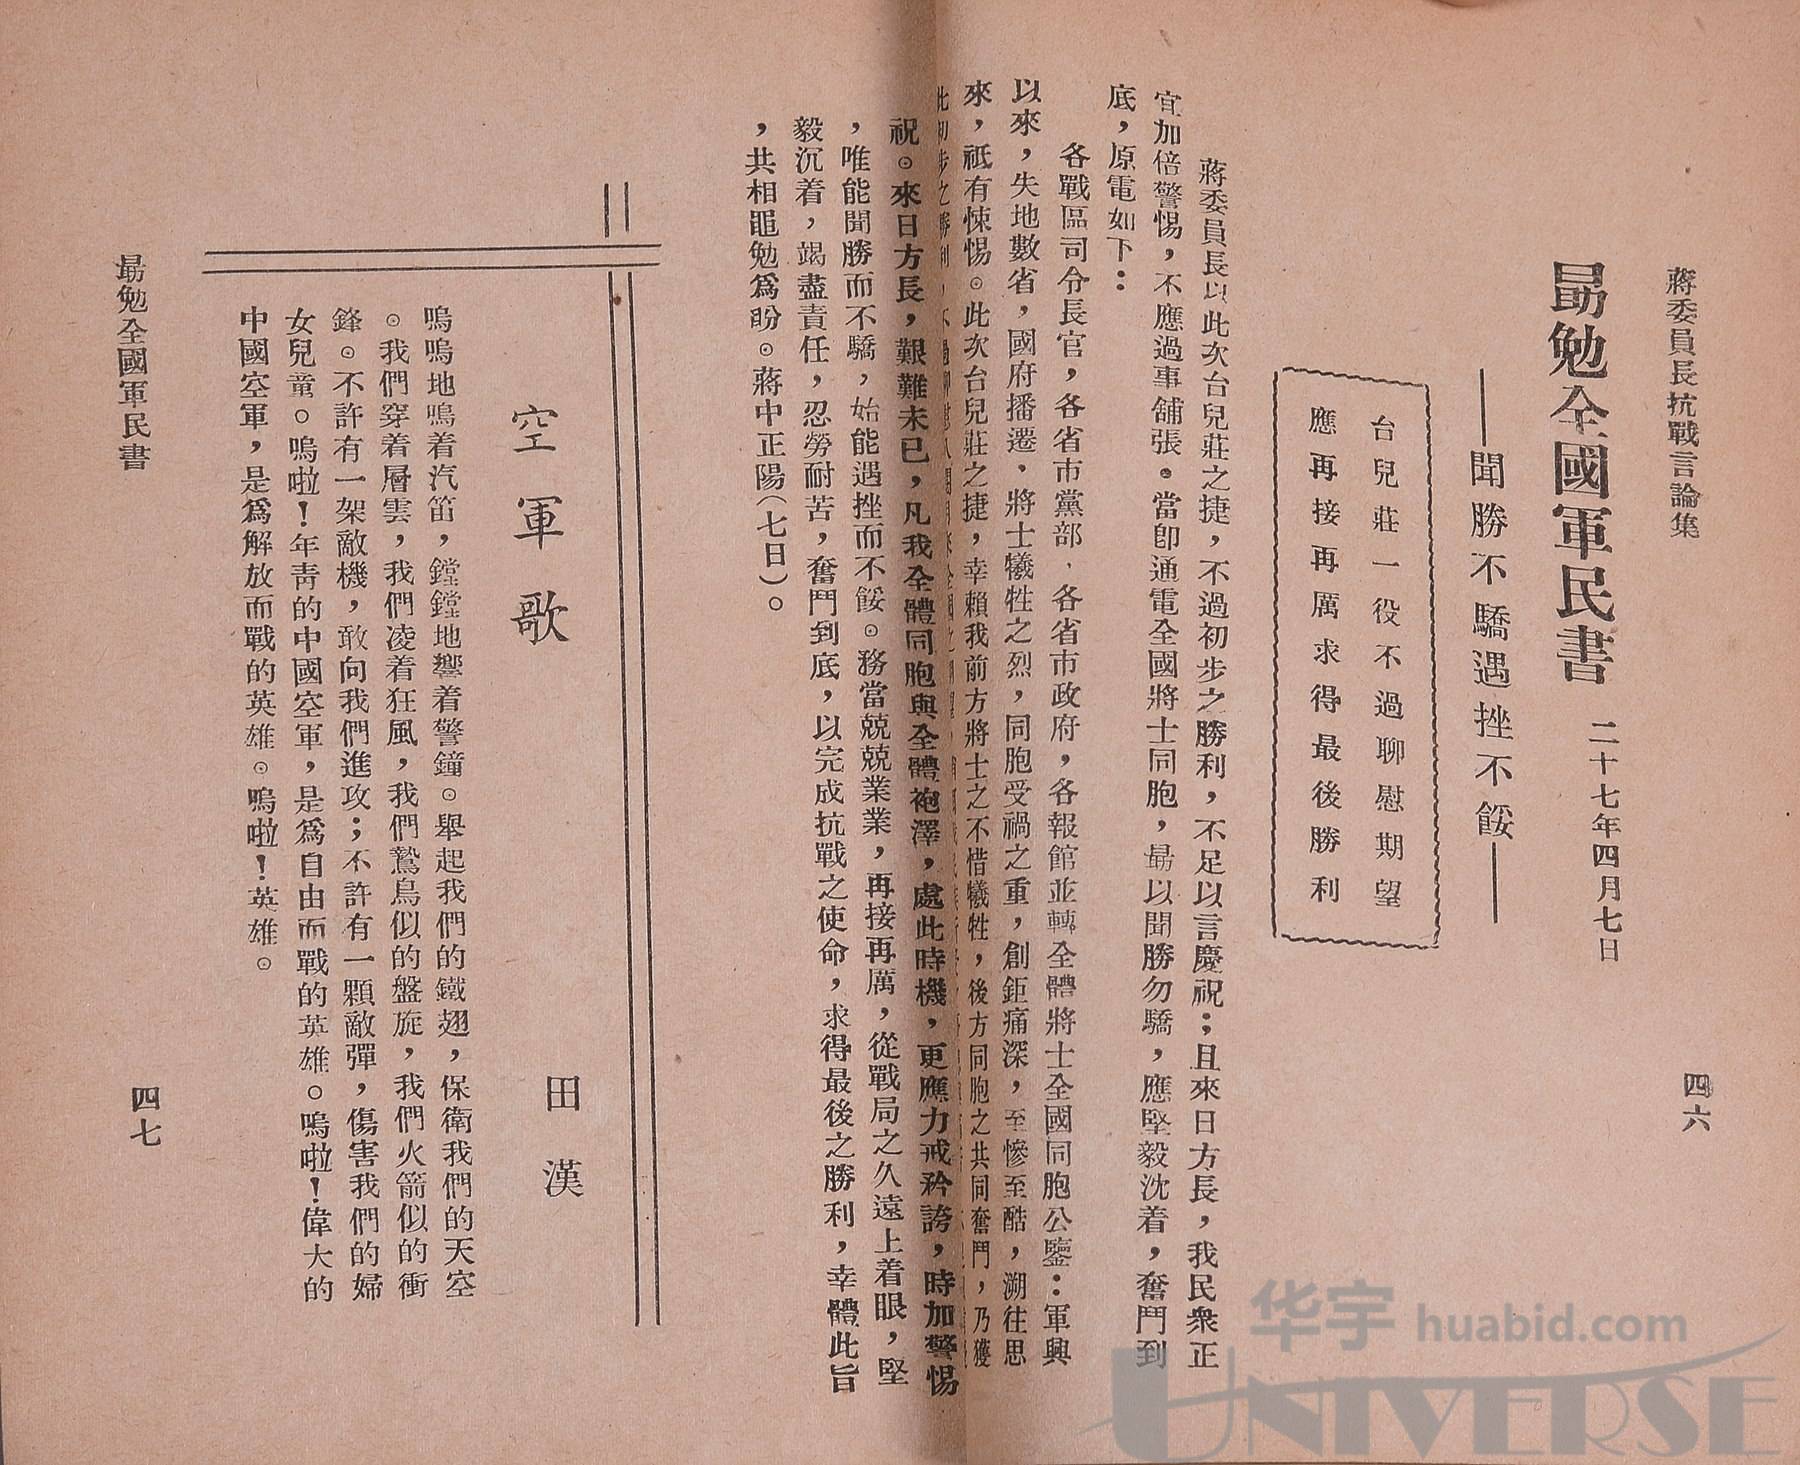 蔣委員長抗戰言論集
四六
勗勉全國軍民書 二十七年四月七日
——聞勝不驕遇挫不餒——
台兒莊一役不過聊慰期望
應再接再厲求得最後勝利
蔣委員長以此次台兒莊之捷，不過初步之勝利，不足以言慶祝；且來日方長，我民衆正
宜加倍警惕，不應過事舖張。當卽通電全國將士同胞，勗以聞勝勿驕，應堅毅沈着，奮鬥到
底，原電如下：
各戰區司令長官，各省市黨部，各省市政府，各報館並轉全體將士全國同胞公鑒：軍興
以來，失地數省，國府播遷，將士犧牲之烈，同胞受禍之重，創鉅痛深，至慘至酷，溯往思
來，祇有悚惕。此次台兒莊之捷，幸賴我前方將士之不惜犧牲，後方同胞之共同奮鬥，乃獲
此初步之勝利，不過聊慰
祝。來日方長，艱難未已，凡我全體同胞與全體袍澤，處此時機，更應力戒矜誇，時加警惕
，唯能聞勝而不驕，始能遇挫而不餒。務當兢兢業業，再接再厲，從戰局之久遠上着眼，堅
毅沉着，竭盡責任，忍勞耐苦，奮鬥到底，以完成抗戰之使命，求得最後之勝利，幸體此旨
，共相黽勉爲盼。蔣中正陽（七日）。
空軍歌
田漢
嗚嗚地鳴着汽笛，鏜鏜地響着警鐘。舉起我們的鐵翅，保衛我們的天空
。我們穿着層雲，我們凌着狂風，我們鷙鳥似的盤旋，我們火箭似的衝
鋒。不許有一架敵機，敢向我們進攻；不許有一顆敵彈，傷害我們的婦
女兒童。嗚啦！年靑的中國空軍，是爲自由而戰的英雄。嗚啦！偉大的
中國空軍，是爲解放而戰的英雄。嗚啦！英雄。
勗勉全國軍民書
四七
华宇 huabid.com
UNIVERSE